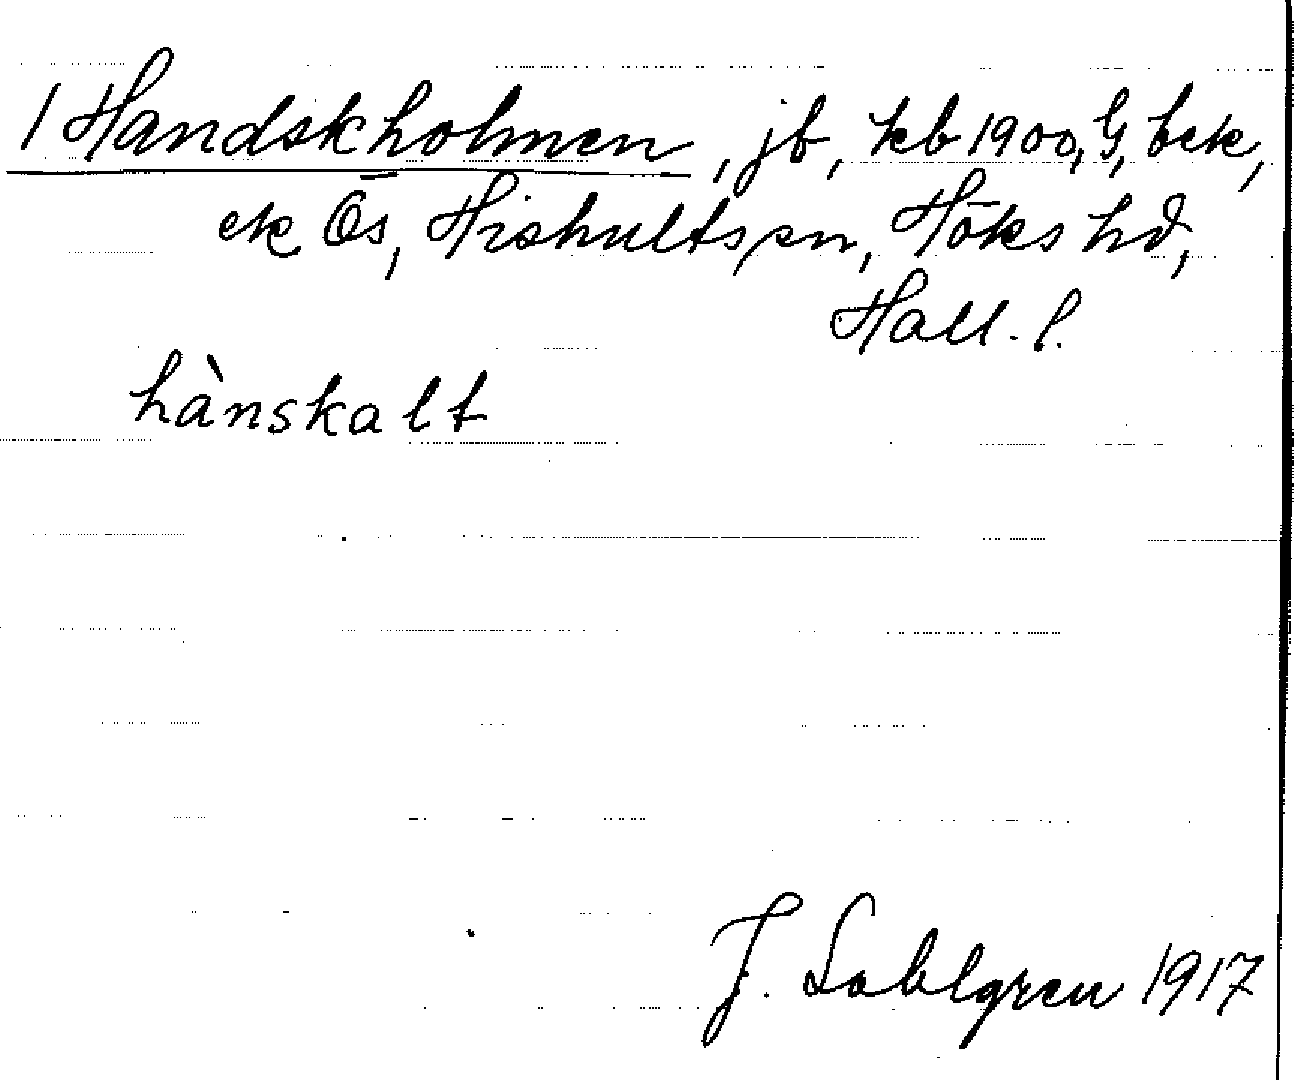 1 Handskholmen, jb, kb 1900, G, bek,
ek Ös, Hishults sn, Höks hd,
Hall. l.
hànskalt
J. Sahlgren 1917